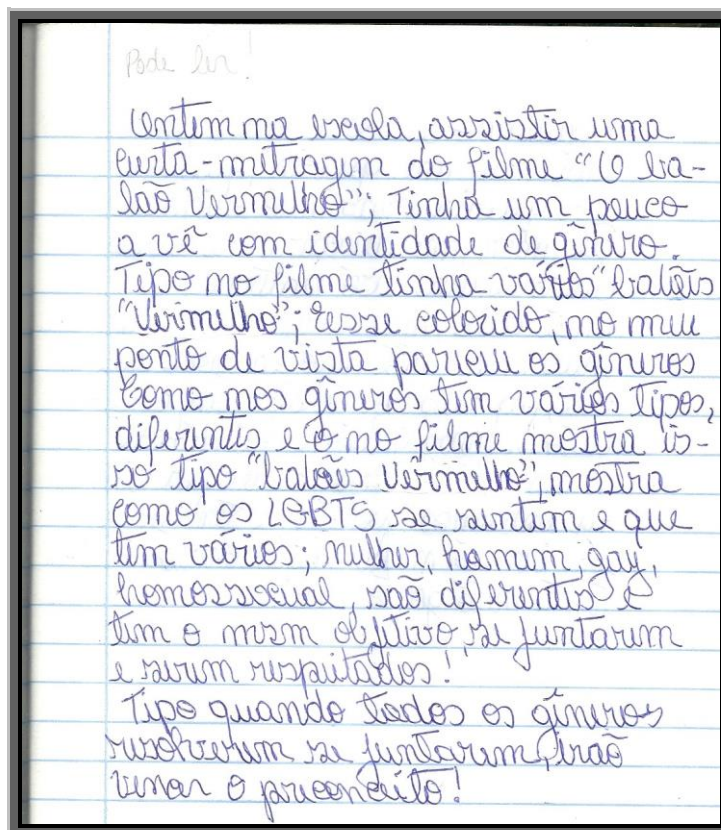 Pode ler!
Ontem na escola, assistir uma
curta-metragem do filme "O ba-
lão Vermelho"; Tinha um pouco
a vê com identidade de gênero.
Tipo no filme tinha vários "balões
"Vermelho"; Esse colorido, no meu
ponto de vista parecem os gêneros
Como nos gêneros tem vários tipos,
diferentes e no filme mostra is-
so tipo "balões Vermelho", mostra
como os LGBTS se sentem e que
tem vários; mulher, homem, gay,
homossexual, são diferentes e
tem o mesm objetivo, se juntarem
e serem respeitados!
Tipo quando todos os gêneros
resolverem se juntarem, irão
vencer o preconceito!